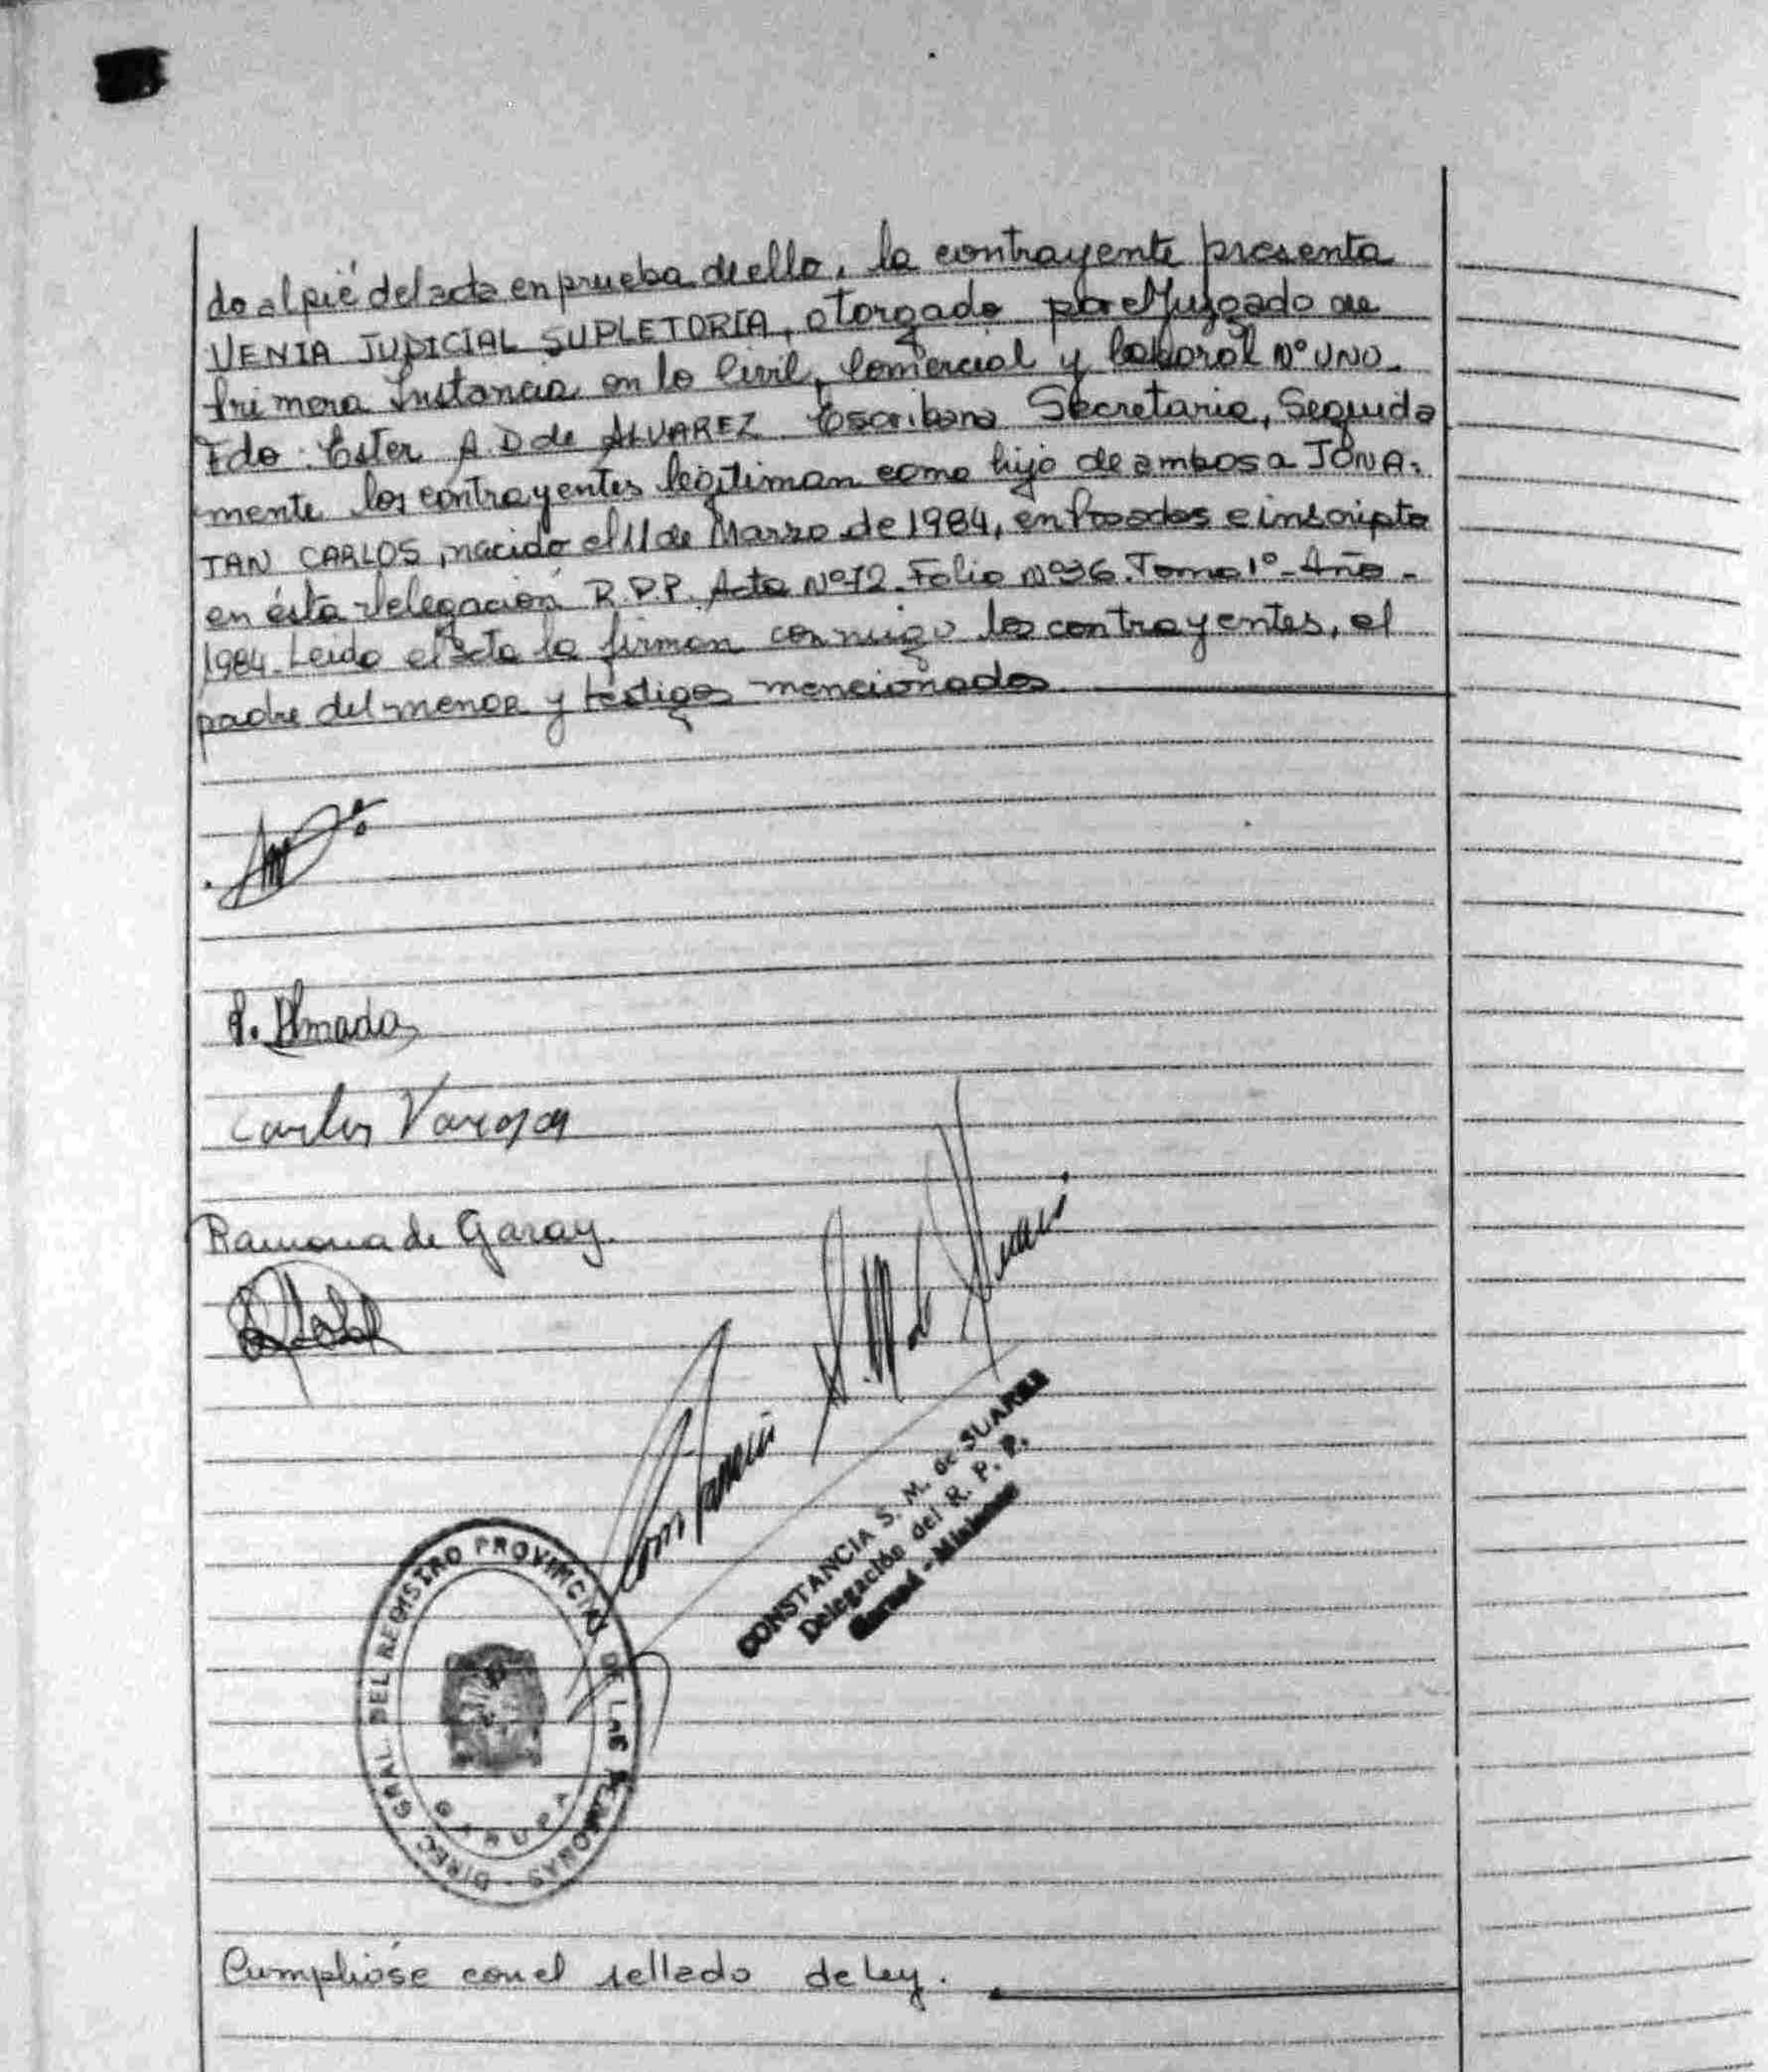 do al pié del acta en prueba de ello, la contrayente presenta
VENIA JUDICIAL SUPLETORIA, otorgado por el Juzgado de
Primera Instancia en lo Civil, Comercial y Laboral Nº UNO.
Fdo: Ester A. D de ALVAREZ Escribana Secretaria, Seguida
mente los contrayentes legitiman como hijo de ambos a JONA-
TAN CARLOS, nacido el 11 de Marzo de 1984, en Posadas e inscripto
en ésta delegación R.P.P. Acta Nº72 Folio Nº36. Tomo 1º- Año -
1984. Leido el acta la firman conmigo los contrayentes, el
padre del menor y testigos mencionados
Almada
Carlos Vargas
Ramona de Garay.
CONSTANCIA S. M. de SUAREZ
Delegación del R. P. P.
Garupá - Misiones
DIREC. GRAL. DEL REGISTRO PROVINCIAL DE LAS PERSONAS
GARUPA
Cumplióse con el sellado de Ley.